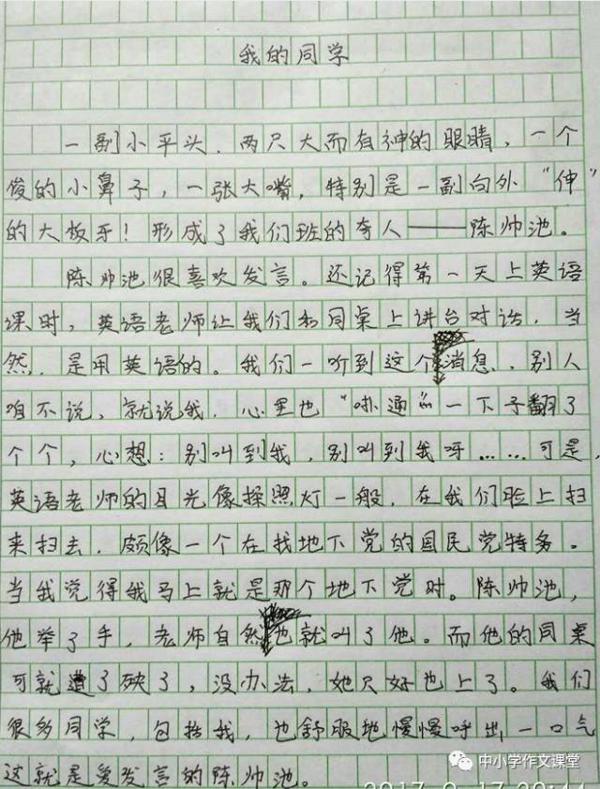 我的同学
一副小平头，两只大而有神的眼睛，一个
俊的小鼻子，一张大嘴，特别是一副向外“伸”
的大板牙！形成了我们班的夸人——陈帅池。
陈帅池很喜欢发言。还记得第一天上英语
课时，英语老师让我们和同桌上讲台对话，当
然，是用英语的。我们一听到这个消息，别人
咱不说，就说我，心里也“咏通”一下子翻了
个个，心想：别叫到我，别叫到我呀……可是，
英语老师的目光像探照灯一般，在我们脸上扫
来扫去，颇像一个在找地下党的国民党特务。
当我觉得我马上就是那个地下党时。陈帅池，
他举了手，老师自然也就叫了他。而他的同桌
可就遭了殃了，没办法，她只好也上了。我们
很多同学，包括我，也舒服地慢慢呼出一口气
这就是爱发言的陈帅池。
中小学作文课堂